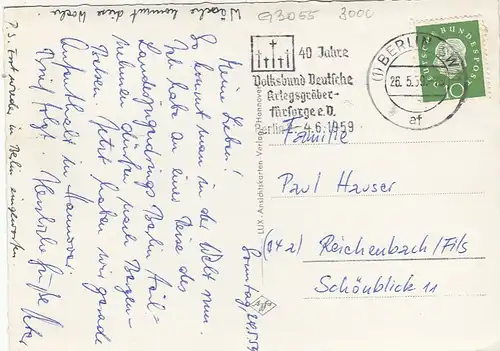 Wäsche kommt diese Woche
G3055 3000
Sonntag, 24.5.59
Meine Lieben!
So kommt man in der Welt rum.
Habe an einer Reise des
Landesjugendrings Berlin teil-
nehmen dürfen nach Bergen-
Belsen. Jetzt haben wir gerade
Aufenthalt in Hannover.
Brief folgt. Herzliche Grüße Peter
P.S. Erst wieder in Berlin eingeworfen.
LUX-Ansichtskarten-Verlag Hannover
40 Jahre
Volksbund Deutsche
Kriegsgräber-
fürsorge e.V.
Berlin 4.6.1959
(1) BERLIN W
26.5.59
af
DEUTSCHE BUNDESPOST
10
Familie
Paul Hauser
(14a) Reichenbach/Fils
Schönblick 11
Agfa